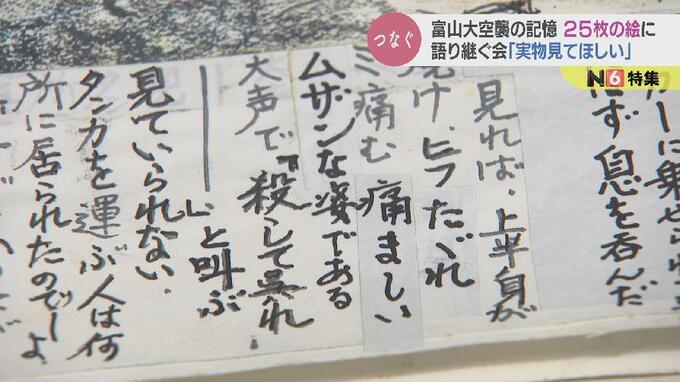 つなぐ
富山大空襲の記憶 25枚の絵に
語り継ぐ会「実物見てほしい」
N6 特集
に乗せられ
ず 息を呑んだ
見れば、上半身が
焼け、ヒフたゞれ
ミ痛む 痛ましい
ムザンな姿である
大声で『殺して呉れ
』と叫ぶ
見ていられない、
タンカを運ぶ人は何
所に居られたのでしよ